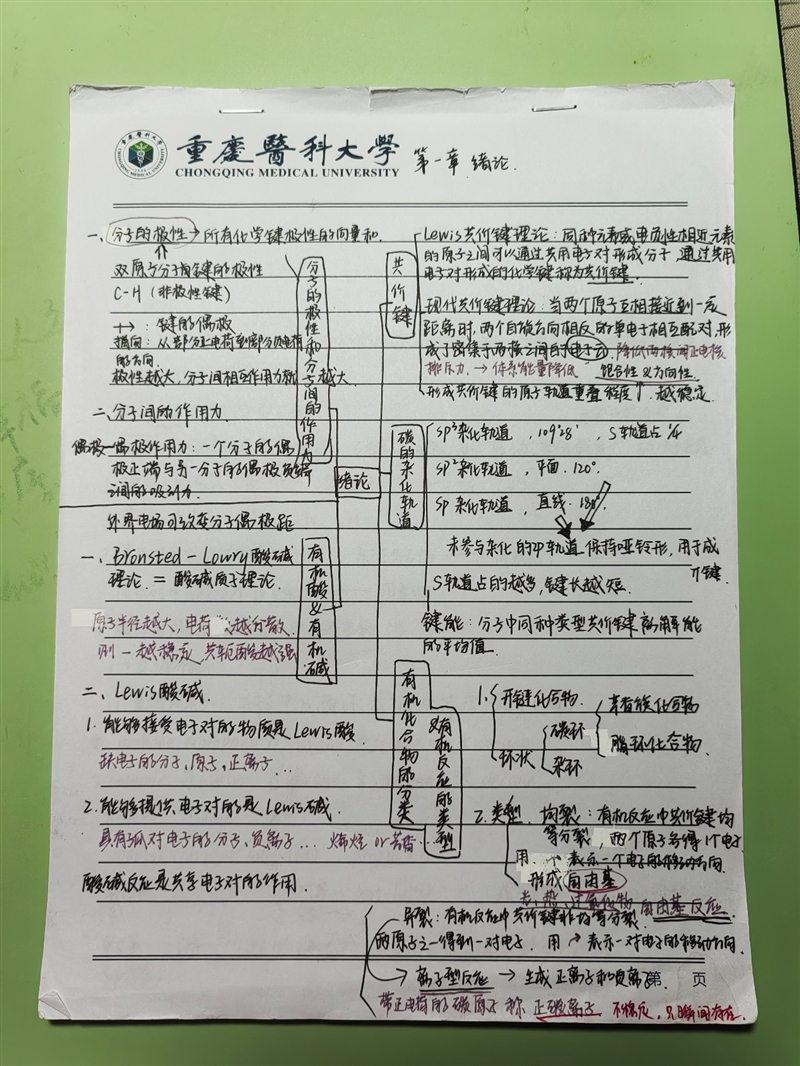 重慶醫科大學
CHONGQING MEDICAL UNIVERSITY
第一章 绪论.
绪论
分子的极性和分子间的作用力
一、分子的极性→所有化学键极性的向量和.
双原子分子间键的极性
C-H (非极性键)
键的偶极
指向：从部分正电荷到部分负电荷
的方向.
极性越大，分子间相互作用力就越大
二、分子间的作用力
偶极-偶极作用力：一个分子的偶
极正端与另一分子的偶极负端
之间的吸引力.
外界电场可改变分子偶极距
有机酸&有机碱
一、Bronsted-Lowry酸碱
理论 = 酸碱质子理论.
原子半径越大，电荷 越分散
则 越稳定 共轭酸越强
二、Lewis酸碱.
1. 能够接受电子对的物质是Lewis酸
缺电子的分子、原子、正离子…
2. 能够提供电子对的是Lewis碱.
具有孤对电子的分子、负离子… 烯烃 or 芳香…
酸碱反应是共享电子对的作用.
共价键
Lewis共价键理论：同种元素或电负性相近元素
的原子之间可以通过共用电子对形成分子 通过共用
电子对形成的化学键称为共价键.
现代共价键理论：当两个原子互相接近到一定
距离时，两个自旋方向相反的单电子相互配对，形
成了密集于两核之间的电子云. 降低两核间正电核
排斥力. → 体系能量降低 饱合性&方向性.
形成共价键的原子轨道重叠程度↑，越稳定
碳的杂化轨道
sp³杂化轨道，109°28′，S轨道占1/4
sp²杂化轨道，平面. 120°.
sp 杂化轨道，直线. 180°
未参与杂化的2P轨道保持哑铃形，用于成
π键.
S轨道占的越多，键长越短.
键能：分子中同种类型共价键离解能
的平均值.
有机化合物的分类&有机反应的类型
1. 开链化合物
环状
碳环
杂环
芳香族化合物
脂环化合物
2. 类型. 均裂：有机反应中共价键均
等分裂，两个原子各得1个电子
用 表示一个电子的移动方向.
形成自由基
光、热、过氧化物 自由基反应.
异裂：有机反应中共价键非均等分裂.
两原子之一得到一对电子. 用 表示一对电子的移动方向.
离子型反应 → 生成正离子和负离子
第 页
带正电荷的碳原子称 正碳离子 不稳定，只瞬间存在.